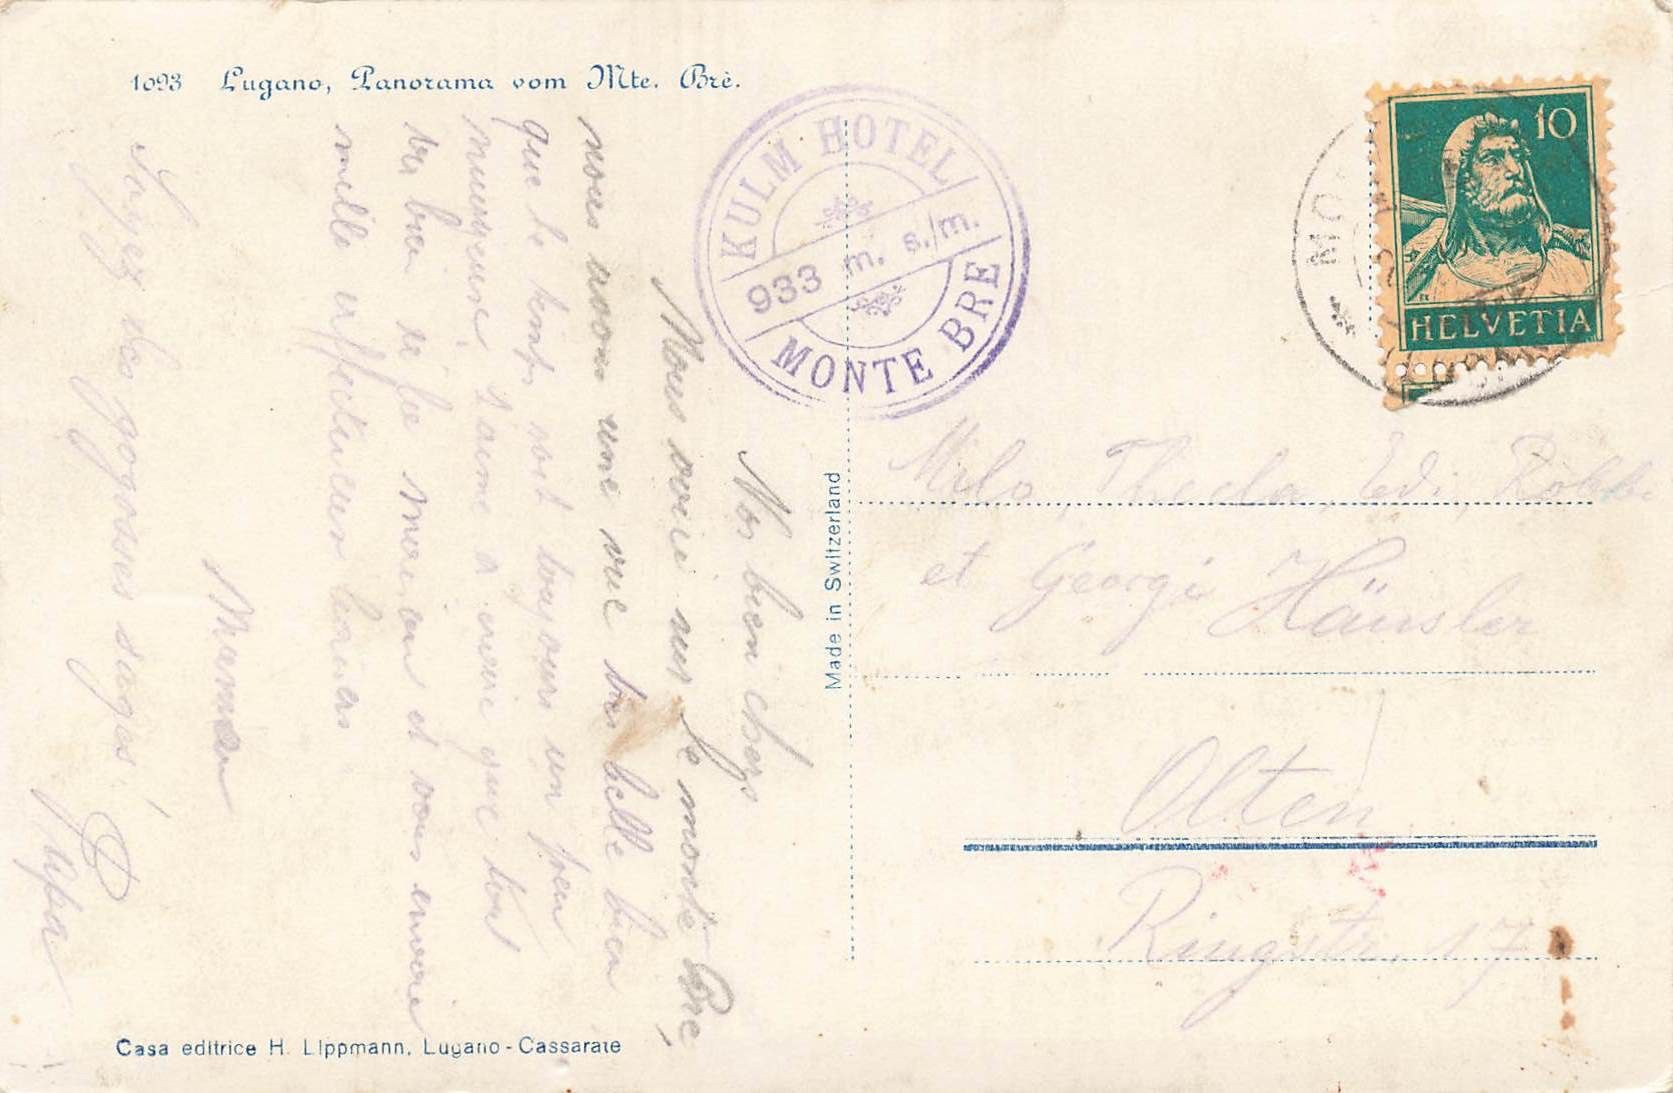 1093 Lugano, Panorama vom Mte. Brè.
KULM HOTEL
933 m. s./m.
MONTE BRE
10
HELVETIA
Made in Switzerland
Vos bien chers
Nous voici sur le monte Bre,
nous avons une vue très belle bien
que le temps soit toujours un peu
J'aime à croire que tout
va bien à la maison et vous envoie
mille affectueux baisers
Maman
Soyez des gogosses sages.
Papa
Theda, Edi,
et Georgi Hänsler
Olten
Ringstr. 17
Casa editrice H. Lippmann, Lugano-Cassarate